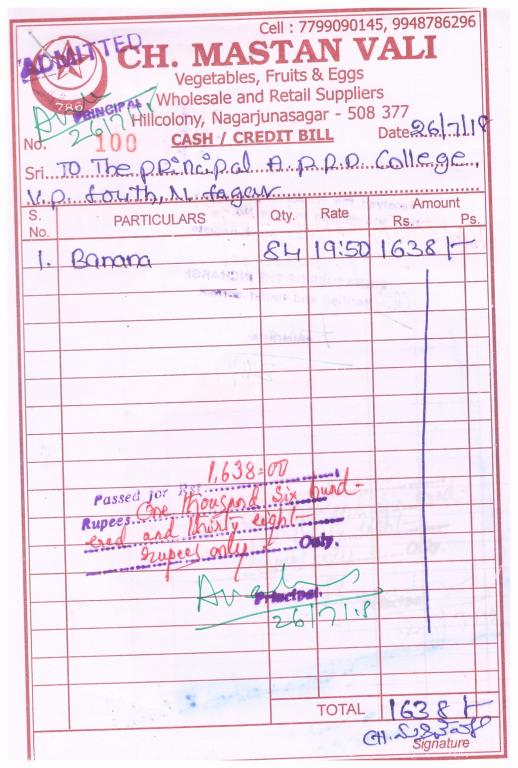 Cell : 7799090145, 9948786296
ADMITTED
CH. MASTAN VALI
786
Vegetables, Fruits & Eggs
Wholesale and Retail Suppliers
PRINCIPAL
26/7/18
Hillcolony, Nagarjunasagar - 508 377
No. 100 CASH / CREDIT BILL Date 26/7/18
Sri... To The principal A.P.R.D. College,
V.P. South, N. Sagar
S. No. PARTICULARS Qty. Rate Amount Rs. Ps.
1. Banana 84 19:50 1638/-
1,638=00
Passed for Rs.
Rupees. One thousand Six hund-
ered and thirty eight
rupees only Only.
Principal.
26/7/18
TOTAL 1638/-
Signature